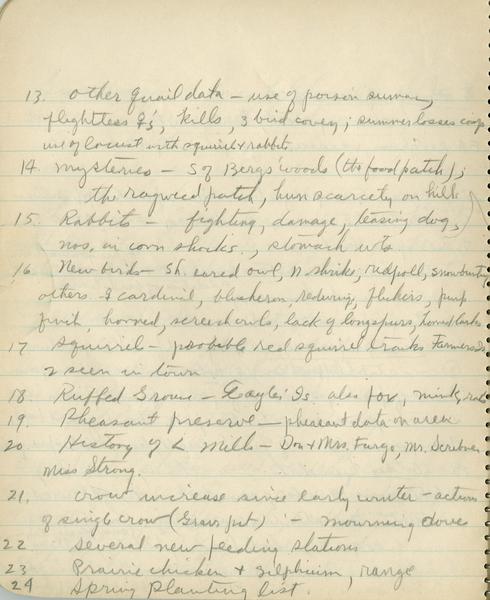 13. Other quail data – use of poison sumac,
flightless q's, kills, 3 bird covey; summer losses comp.
use of locust with squirrel & rabbit
14. Mysteries – S of Bergs' woods (the food patch);
the ragweed patch, hun scarcety on hills
15. Rabbits – fighting, damage, teasing dog,
nos. in corn shocks., stomach wts.
16 New birds – Sh. eared owl, n shrike, redpoll, snow bunting,
others cardinal, blue heron, redwing, flickers, purp
finch, horned, screech owls, lack of longspurs, horned larks
17 Squirrel – probable red squirrel tracks Farmers Is
2 seen in town
18. Ruffed Grouse – Gayles' Is. also fox, mink,
19. Pheasant preserve – pheasant data on area
20 History of L Mills – Don & Mrs. Fargo, Mr. Scribner,
Miss Strong.
21. Crow increase since early winter – actions
of single crow (Gravs pit) – mourning doves
22 Several new feeding stations
23 Prairie chicken & Silphium, range
24 Spring Planting list.